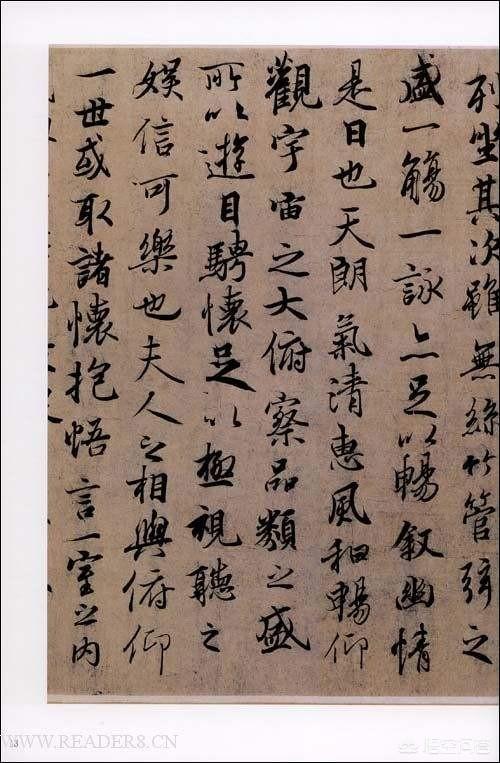 列坐其次雖無絲竹管弦之
盛一觴一詠亦足以暢叙幽情
是日也天朗氣清惠風和暢仰
觀宇宙之大俯察品類之盛
所以遊目騁懷足以極視聽之
娛信可樂也夫人之相與俯仰
一世或取諸懷抱悟言一室之內
WWW.READER8.CN
悟空问答